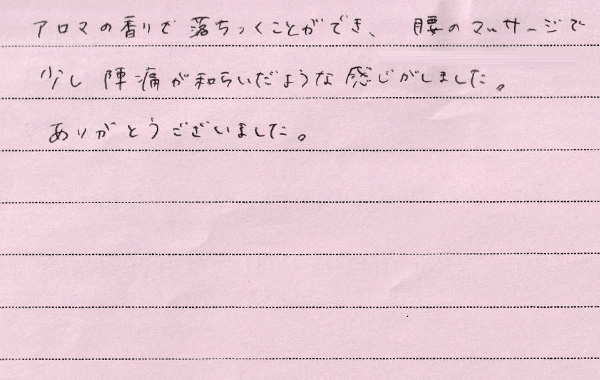 アロマの香りで落ちつくことができ、腰のマッサージで
少し陣痛が和らいだような感じがしました。
ありがとうございました。